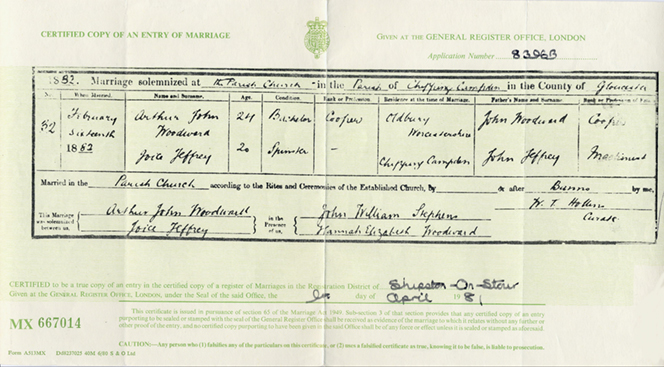 CERTIFIED COPY OF AN ENTRY OF MARRIAGE
GIVEN AT THE GENERAL REGISTER OFFICE, LONDON
Application Number 8396B
1882. Marriage solemnized at the Parish Church in the Parish of Chipping Campden in the County of Gloucester
No. When Married. Name and Surname. Age. Condition. Rank or Profession. Residence at the time of Marriage. Father's Name and Surname. Rank or Profession of Father
52 February sixteenth 1882
Arthur John Woodward 24 Bachelor Cooper Oldbury Worcestershire John Woodward Cooper
Joice Jeffrey 20 Spinster — Chipping Campden John Jeffrey Machinist
Married in the Parish Church according to the Rites and Ceremonies of the Established Church, by or after Banns by me,
W. T. Hollins
Curate
This Marriage was solemnized between us,
Arthur John Woodward
Joice Jeffrey
in the Presence of us,
John William Stephens
Hannah Elizabeth Woodward
CERTIFIED to be a true copy of an entry in the certified copy of a register of Marriages in the Registration District of Shipston-On-Stour
Given at the GENERAL REGISTER OFFICE, LONDON, under the Seal of the said Office, the day of April 1981
MX 667014
This certificate is issued in pursuance of section 65 of the Marriage Act 1949. Sub-section 3 of that section provides that any certified copy of an entry
purporting to be sealed or stamped with the seal of the General Register Office shall be received as evidence of the marriage to which it relates without any further or
other proof of the entry, and no certified copy purporting to have been given in the said Office shall be of any force or effect unless it is sealed or stamped as aforesaid.
CAUTION:—Any person who (1) falsifies any of the particulars on this certificate, or (2) uses a falsified certificate as true, knowing it to be false, is liable to prosecution.
Form A513MX Dd8237025 40M 6/80 S & O Ltd